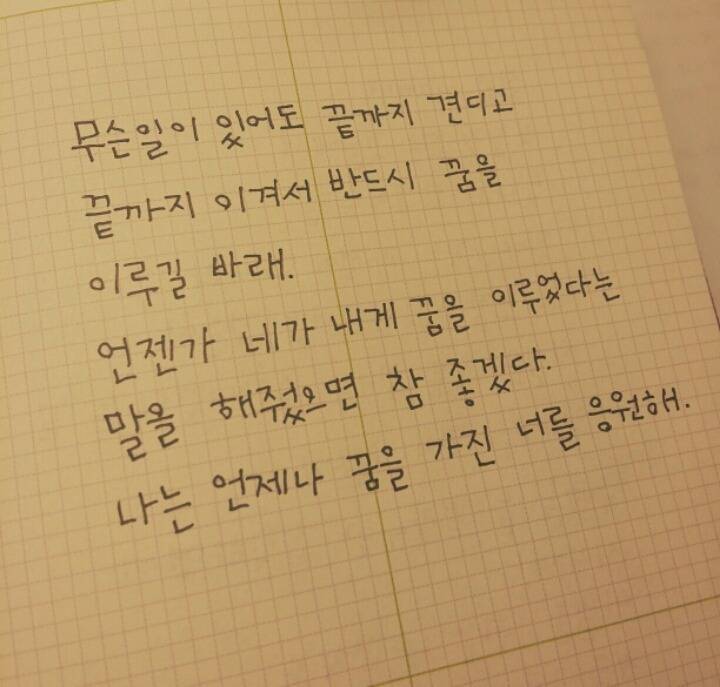 무슨일이 있어도 끝까지 견디고
끝까지 이겨서 반드시 꿈을
이루길 바래.
언젠가 네가 내게 꿈을 이루었다는
말을 해줬으면 참 좋겠다.
나는 언제나 꿈을 가진 너를 응원해.